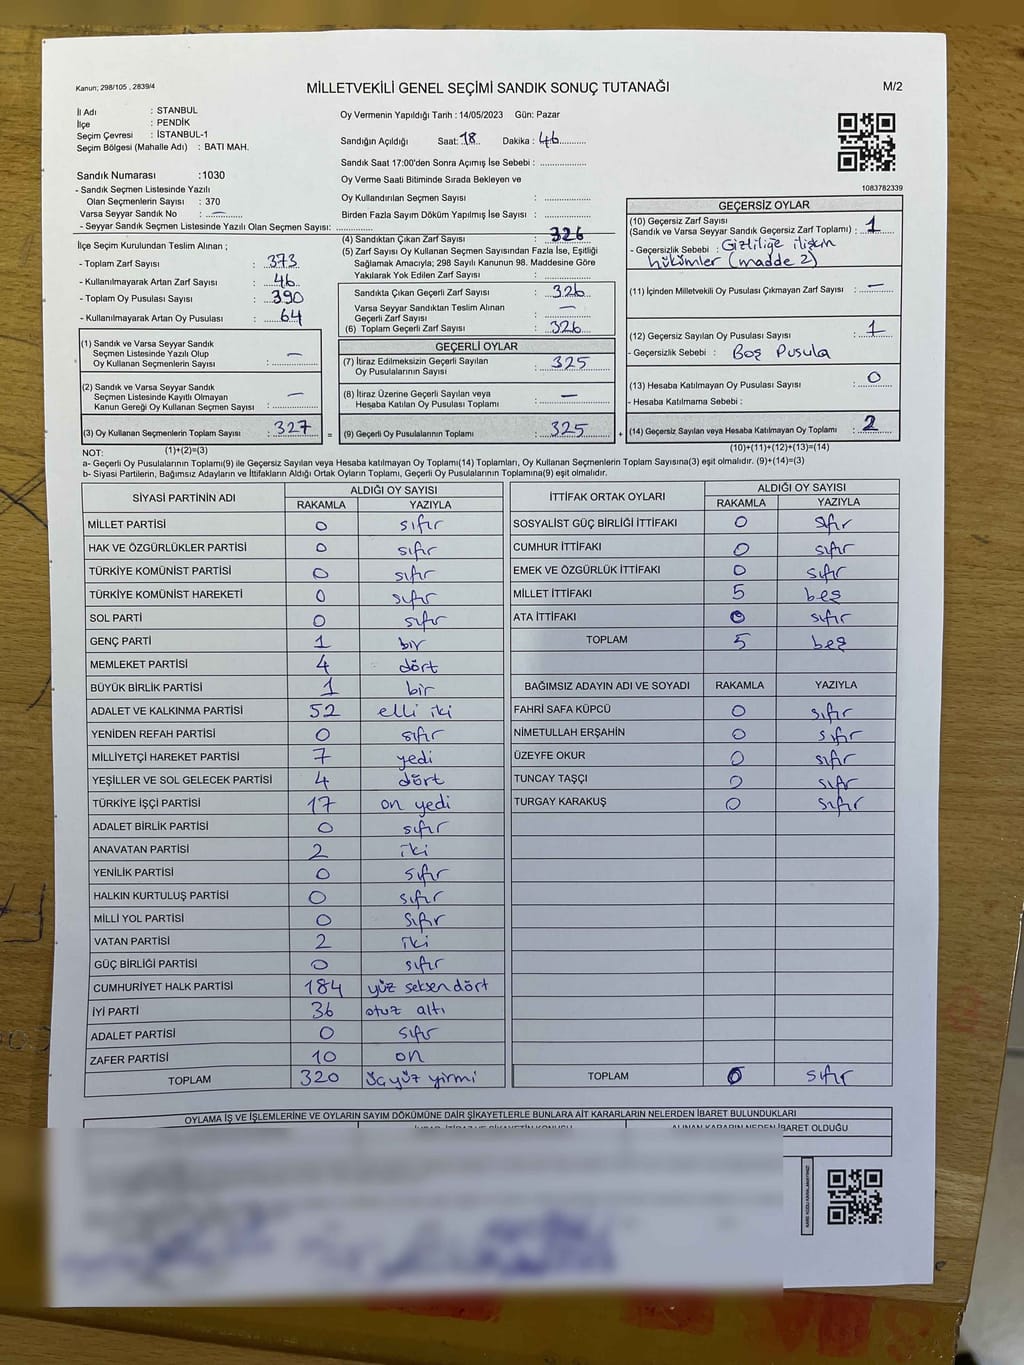 Kanun; 298/105 , 2839/4
MİLLETVEKİLİ GENEL SEÇİMİ SANDIK SONUÇ TUTANAĞI
M/2
İl Adı : STANBUL
İlçe : PENDİK
Seçim Çevresi : İSTANBUL-1
Seçim Bölgesi (Mahalle Adı) : BATI MAH.
Oy Vermenin Yapıldığı Tarih : 14/05/2023 Gün: Pazar
Sandığın Açıldığı Saat: 18 Dakika : 46
Sandık Saat 17:00'den Sonra Açmış İse Sebebi :
Oy Verme Saati Bitiminde Sırada Bekleyen ve
Oy Kullandırılan Seçmen Sayısı :
Birden Fazla Sayım Döküm Yapılmış İse Sayısı :
1083782339
Sandık Numarası :1030
- Sandık Seçmen Listesinde Yazılı
Olan Seçmenlerin Sayısı : 370
Varsa Seyyar Sandık No : —
- Seyyar Sandık Seçmen Listesinde Yazılı Olan Seçmen Sayısı:
İlçe Seçim Kurulundan Teslim Alınan ;
- Toplam Zarf Sayısı : 373
- Kullanılmayarak Artan Zarf Sayısı : 46
- Toplam Oy Pusulası Sayısı : 390
- Kullanılmayarak Artan Oy Pusulası : 64
(1) Sandık ve Varsa Seyyar Sandık
Seçmen Listesinde Yazılı Olup
Oy Kullanan Seçmenlerin Sayısı : —
(2) Sandık ve Varsa Seyyar Sandık
Seçmen Listesinde Kayıtlı Olmayan
Kanun Gereği Oy Kullanan Seçmen Sayısı : —
(3) Oy Kullanan Seçmenlerin Toplam Sayısı : 327
(1)+(2)=(3)
(4) Sandıktan Çıkan Zarf Sayısı : 326
(5) Zarf Sayısı Oy Kullanan Seçmen Sayısından Fazla İse, Eşitliği
Sağlamak Amacıyla; 298 Sayılı Kanunun 98. Maddesine Göre
Yakılarak Yok Edilen Zarf Sayısı :
Sandıkta Çıkan Geçerli Zarf Sayısı : 326
Varsa Seyyar Sandıktan Teslim Alınan
Geçerli Zarf Sayısı : —
(6) Toplam Geçerli Zarf Sayısı : 326
GEÇERLİ OYLAR
(7) İtiraz Edilmeksizin Geçerli Sayılan
Oy Pusulalarının Sayısı : 325
(8) İtiraz Üzerine Geçerli Sayılan veya
Hesaba Katılan Oy Pusulası Toplamı : —
= (9) Geçerli Oy Pusulalarının Toplamı : 325 +
GEÇERSİZ OYLAR
(10) Geçersiz Zarf Sayısı
(Sandık ve Varsa Seyyar Sandık Geçersiz Zarf Toplamı) : 1
- Geçersizlik Sebebi : Gizliliğe ilişkin
hükümler (madde 2)
(11) İçinden Milletvekili Oy Pusulası Çıkmayan Zarf Sayısı : —
(12) Geçersiz Sayılan Oy Pusulası Sayısı : 1
- Geçersizlik Sebebi : Boş Pusula
(13) Hesaba Katılmayan Oy Pusulası Sayısı : 0
- Hesaba Katılmama Sebebi :
(14) Geçersiz Sayılan veya Hesaba Katılmayan Oy Toplamı : 2
(10)+(11)+(12)+(13)=(14)
NOT:
a- Geçerli Oy Pusulalarının Toplamı(9) ile Geçersiz Sayılan veya Hesaba Katılmayan Oy Toplamı(14) Toplamları, Oy Kullanan Seçmenlerin Toplam Sayısına(3) eşit olmalıdır. (9)+(14)=(3)
b- Siyasi Partilerin, Bağımsız Adayların ve İttifakların Aldığı Ortak Oyların Toplamı, Geçerli Oy Pusulalarının Toplamına(9) eşit olmalıdır.
SİYASİ PARTİNİN ADI ALDIĞI OY SAYISI
RAKAMLA YAZIYLA
MİLLET PARTİSİ 0 sıfır
HAK VE ÖZGÜRLÜKLER PARTİSİ 0 sıfır
TÜRKİYE KOMÜNİST PARTİSİ 0 sıfır
TÜRKİYE KOMÜNİST HAREKETİ 0 sıfır
SOL PARTİ 0 sıfır
GENÇ PARTİ 1 bir
MEMLEKET PARTİSİ 4 dört
BÜYÜK BİRLİK PARTİSİ 1 bir
ADALET VE KALKINMA PARTİSİ 52 elli iki
YENİDEN REFAH PARTİSİ 0 sıfır
MİLLİYETÇİ HAREKET PARTİSİ 7 yedi
YEŞİLLER VE SOL GELECEK PARTİSİ 4 dört
TÜRKİYE İŞÇİ PARTİSİ 17 on yedi
ADALET BİRLİK PARTİSİ 0 sıfır
ANAVATAN PARTİSİ 2 iki
YENİLİK PARTİSİ 0 sıfır
HALKIN KURTULUŞ PARTİSİ 0 sıfır
MİLLİ YOL PARTİSİ 0 sıfır
VATAN PARTİSİ 2 iki
GÜÇ BİRLİĞİ PARTİSİ 0 sıfır
CUMHURİYET HALK PARTİSİ 184 yüz seksen dört
İYİ PARTİ 36 otuz altı
ADALET PARTİSİ 0 sıfır
ZAFER PARTİSİ 10 on
TOPLAM 320 üçyüz yirmi
İTTİFAK ORTAK OYLARI ALDIĞI OY SAYISI
RAKAMLA YAZIYLA
SOSYALİST GÜÇ BİRLİĞİ İTTİFAKI 0 sıfır
CUMHUR İTTİFAKI 0 sıfır
EMEK VE ÖZGÜRLÜK İTTİFAKI 0 sıfır
MİLLET İTTİFAKI 5 beş
ATA İTTİFAKI 0 sıfır
TOPLAM 5 beş
BAĞIMSIZ ADAYIN ADI VE SOYADI RAKAMLA YAZIYLA
FAHRİ SAFA KÜPCÜ 0 sıfır
NİMETULLAH ERŞAHİN 0 sıfır
ÜZEYFE OKUR 0 sıfır
TUNCAY TAŞÇI 0 sıfır
TURGAY KARAKUŞ 0 sıfır
TOPLAM 0 sıfır
OYLAMA İŞ VE İŞLEMLERİNE VE OYLARIN SAYIM DÖKÜMÜNE DAİR ŞİKAYETLERLE BUNLARA AİT KARARLARIN NELERDEN İBARET BULUNDUKLARI
ALINAN KARARIN NEDEN İBARET OLDUĞU
KARE KODU KARALAMAYINIZ!